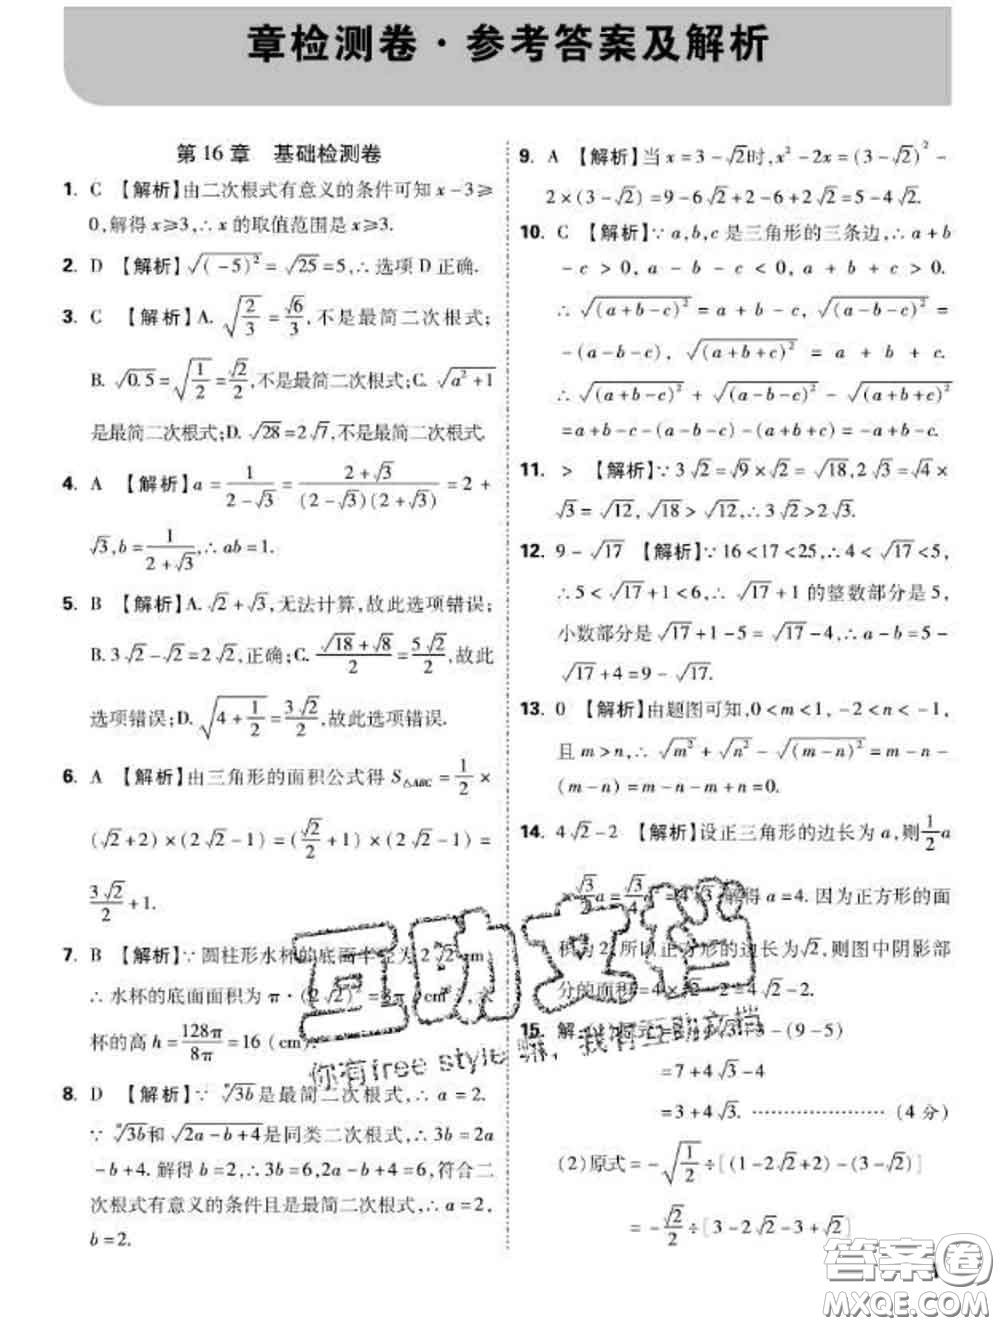 章检测卷·参考答案及解析
第16章 基础检测卷
1. C 【解析】由二次根式有意义的条件可知 x-3≥
0,解得 x≥3,∴ x 的取值范围是 x≥3.
2. D 【解析】√(-5)² = √25 =5,∴选项 D 正确.
3. C 【解析】A. √(2/3) = √6/3,不是最简二次根式;
B. √0.5 = √(1/2) = √2/2,不是最简二次根式;C. √(a²+1)
是最简二次根式;D. √28 =2√7,不是最简二次根式.
4. A 【解析】a = 1/(2-√3) = (2+√3)/((2-√3)(2+√3)) = 2+
√3,b = 1/(2+√3),∴ ab=1.
5. B 【解析】A. √2+√3,无法计算,故此选项错误;
B. 3√2-√2=2√2,正确;C. (√18+√8)/2 = 5√2/2,故此
选项错误;D. √(4+1/2) = 3√2/2,故此选项错误.
6. A 【解析】由三角形的面积公式得 S△ABC = 1/2 ×
(√2+2)×(2√2-1)=(√2/2+1)×(2√2-1)=
3√2/2+1.
7. B 【解析】∵圆柱形水杯的底面半径为 2√2 cm,
∴水杯的底面面积为 π·(2√2)² = 8π (cm²),水
杯的高 h = 128π/8π = 16 (cm).
8. D 【解析】∵ ᵃ√3b是最简二次根式,∴ a=2.
∵ ᵃ√3b和√(2a-b+4)是同类二次根式,∴ 3b=2a
-b+4. 解得 b=2,∴ 3b=6,2a-b+4=6,符合二
次根式有意义的条件且是最简二次根式,∴ a=2,
b=2.
9. A 【解析】当 x=3-√2时,x²-2x=(3-√2)²-
2×(3-√2)=9-6√2+2-6+2√2=5-4√2.
10. C 【解析】∵ a,b,c 是三角形的三条边,∴ a+b
-c>0, a-b-c<0, a+b+c>0.
∴ √(a+b-c)² = a+b-c, √(a-b-c)² =
-(a-b-c), √(a+b+c)² = a+b+c.
∴ √(a+b-c)² + √(a-b-c)² - √(a+b+c)²
=a+b-c-(a-b-c)-(a+b+c)=-a+b-c.
11. > 【解析】∵ 3√2=√9×√2=√18,2√3=√4×
√3=√12,√18>√12,∴ 3√2>2√3.
12. 9-√17 【解析】∵ 16<17<25,∴ 4<√17<5,
∴ 5<√17+1<6,∴ √17+1 的整数部分是 5,
小数部分是√17+1-5=√17-4,∴ a-b=5-
√17+4=9-√17.
13. 0 【解析】由题图可知,0<m<1,-2<n<-1,
且 m>n,∴ √m²+√n²-√(m-n)²=m-n-
(m-n)=m-n-m+n=0.
14. 4√2-2 【解析】设正三角形的边长为 a,则 1/2 a
·√3/2 a = √3/4 a² = 4√3,解得 a=4. 因为正方形的面
积为 2,所以正方形的边长为√2,则图中阴影部
分的面积=4×√2-2=4√2-2.
15. 解:(1)原式=4+4√3+3-(9-5)
=7+4√3-4
=3+4√3. ……………… (4 分)
(2)原式=-√(1/2)÷[(1-2√2+2)-(3-√2)]
=-√2/2÷[3-2√2-3+√2]
互助文档
你有free style嘛,我有互助文档
答案卷
MXQE.COM